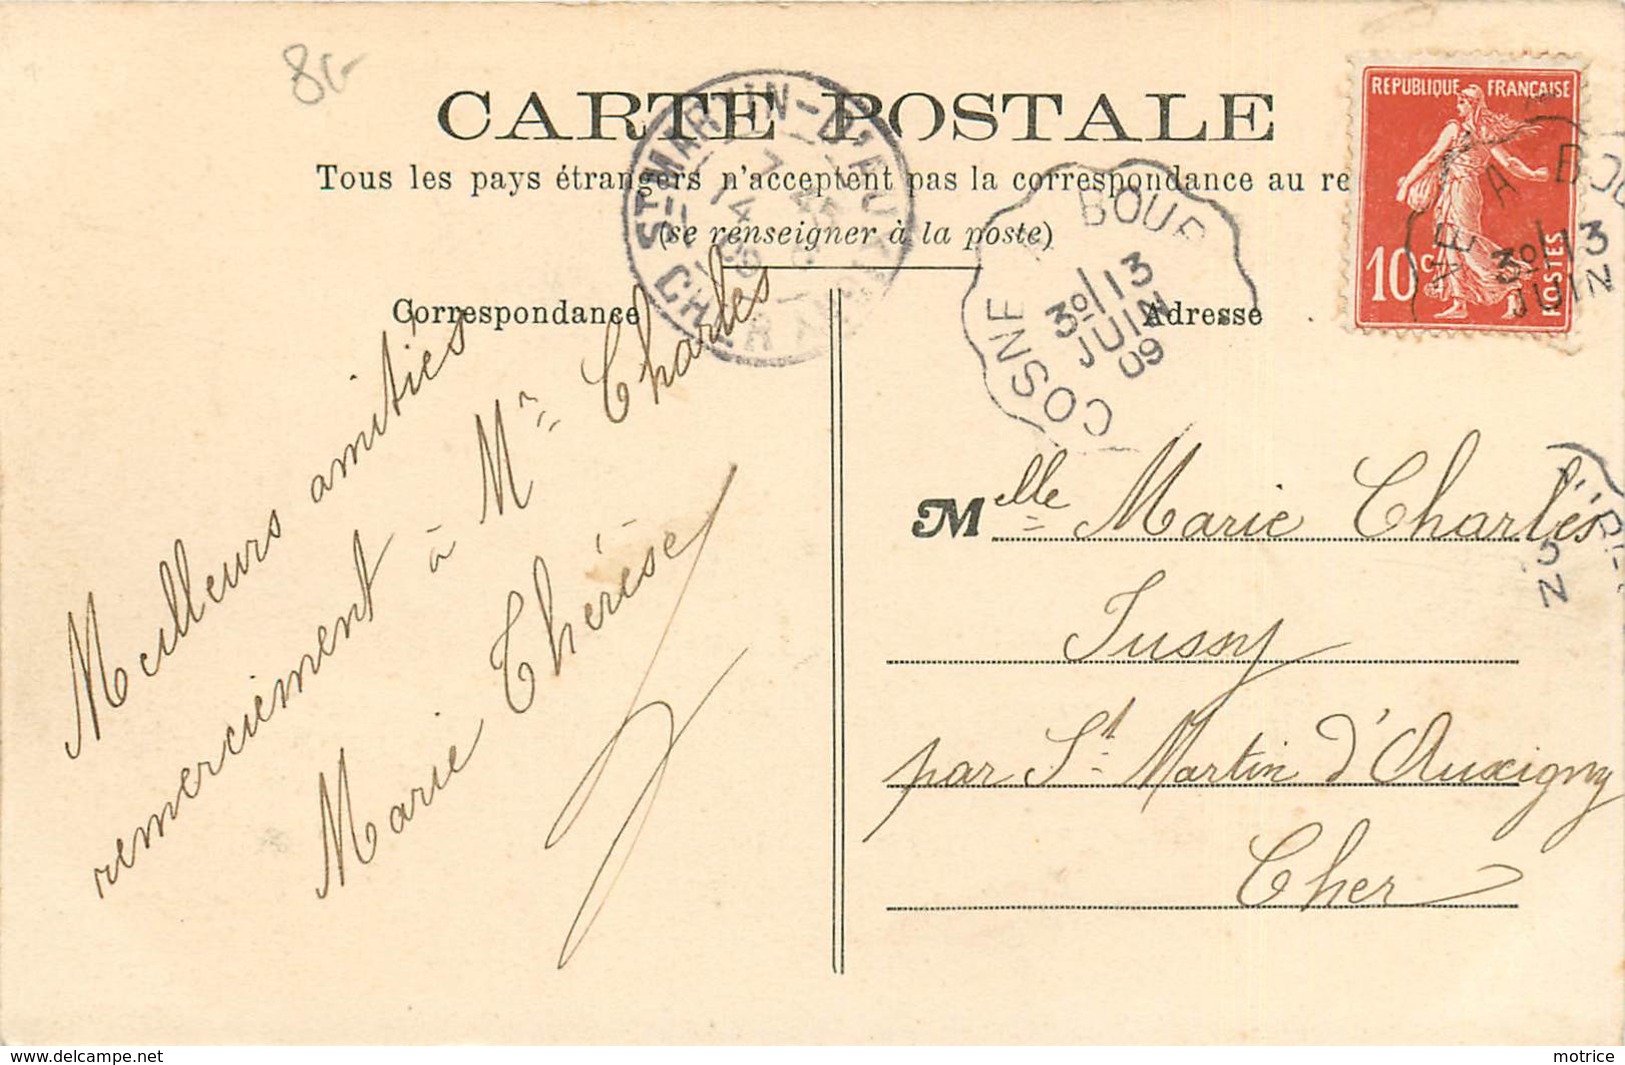 8f-
CARTE POSTALE
Tous les pays étrangers n'acceptent pas la correspondance au re
(se renseigner à la poste)
Correspondance
Adresse
REPUBLIQUE FRANÇAISE
10c
POSTES
ST MARTIN-D'AUXIGNY
CHER
COSNE A BOUR
3º/13
JUIN
09
NE A BOU
3º/13
JUIN
Meilleurs amitiés
remerciement à Mr Charles
Marie Thérèse
Melle Marie Charles
Jussy
par St Martin d'Auxigny
Cher
www.delcampe.net
motrice